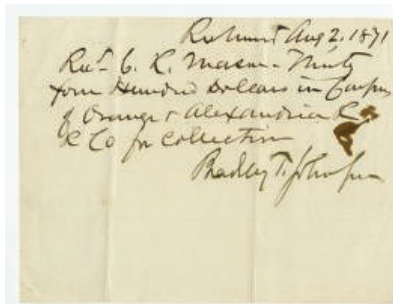 Richmond Aug 2. 1871
Recd C. R. Mason - Thirty
four Hundred Dollars in Coupons
of Orange & Alexandria R
R Co for Collection
Bradley T. Johnson